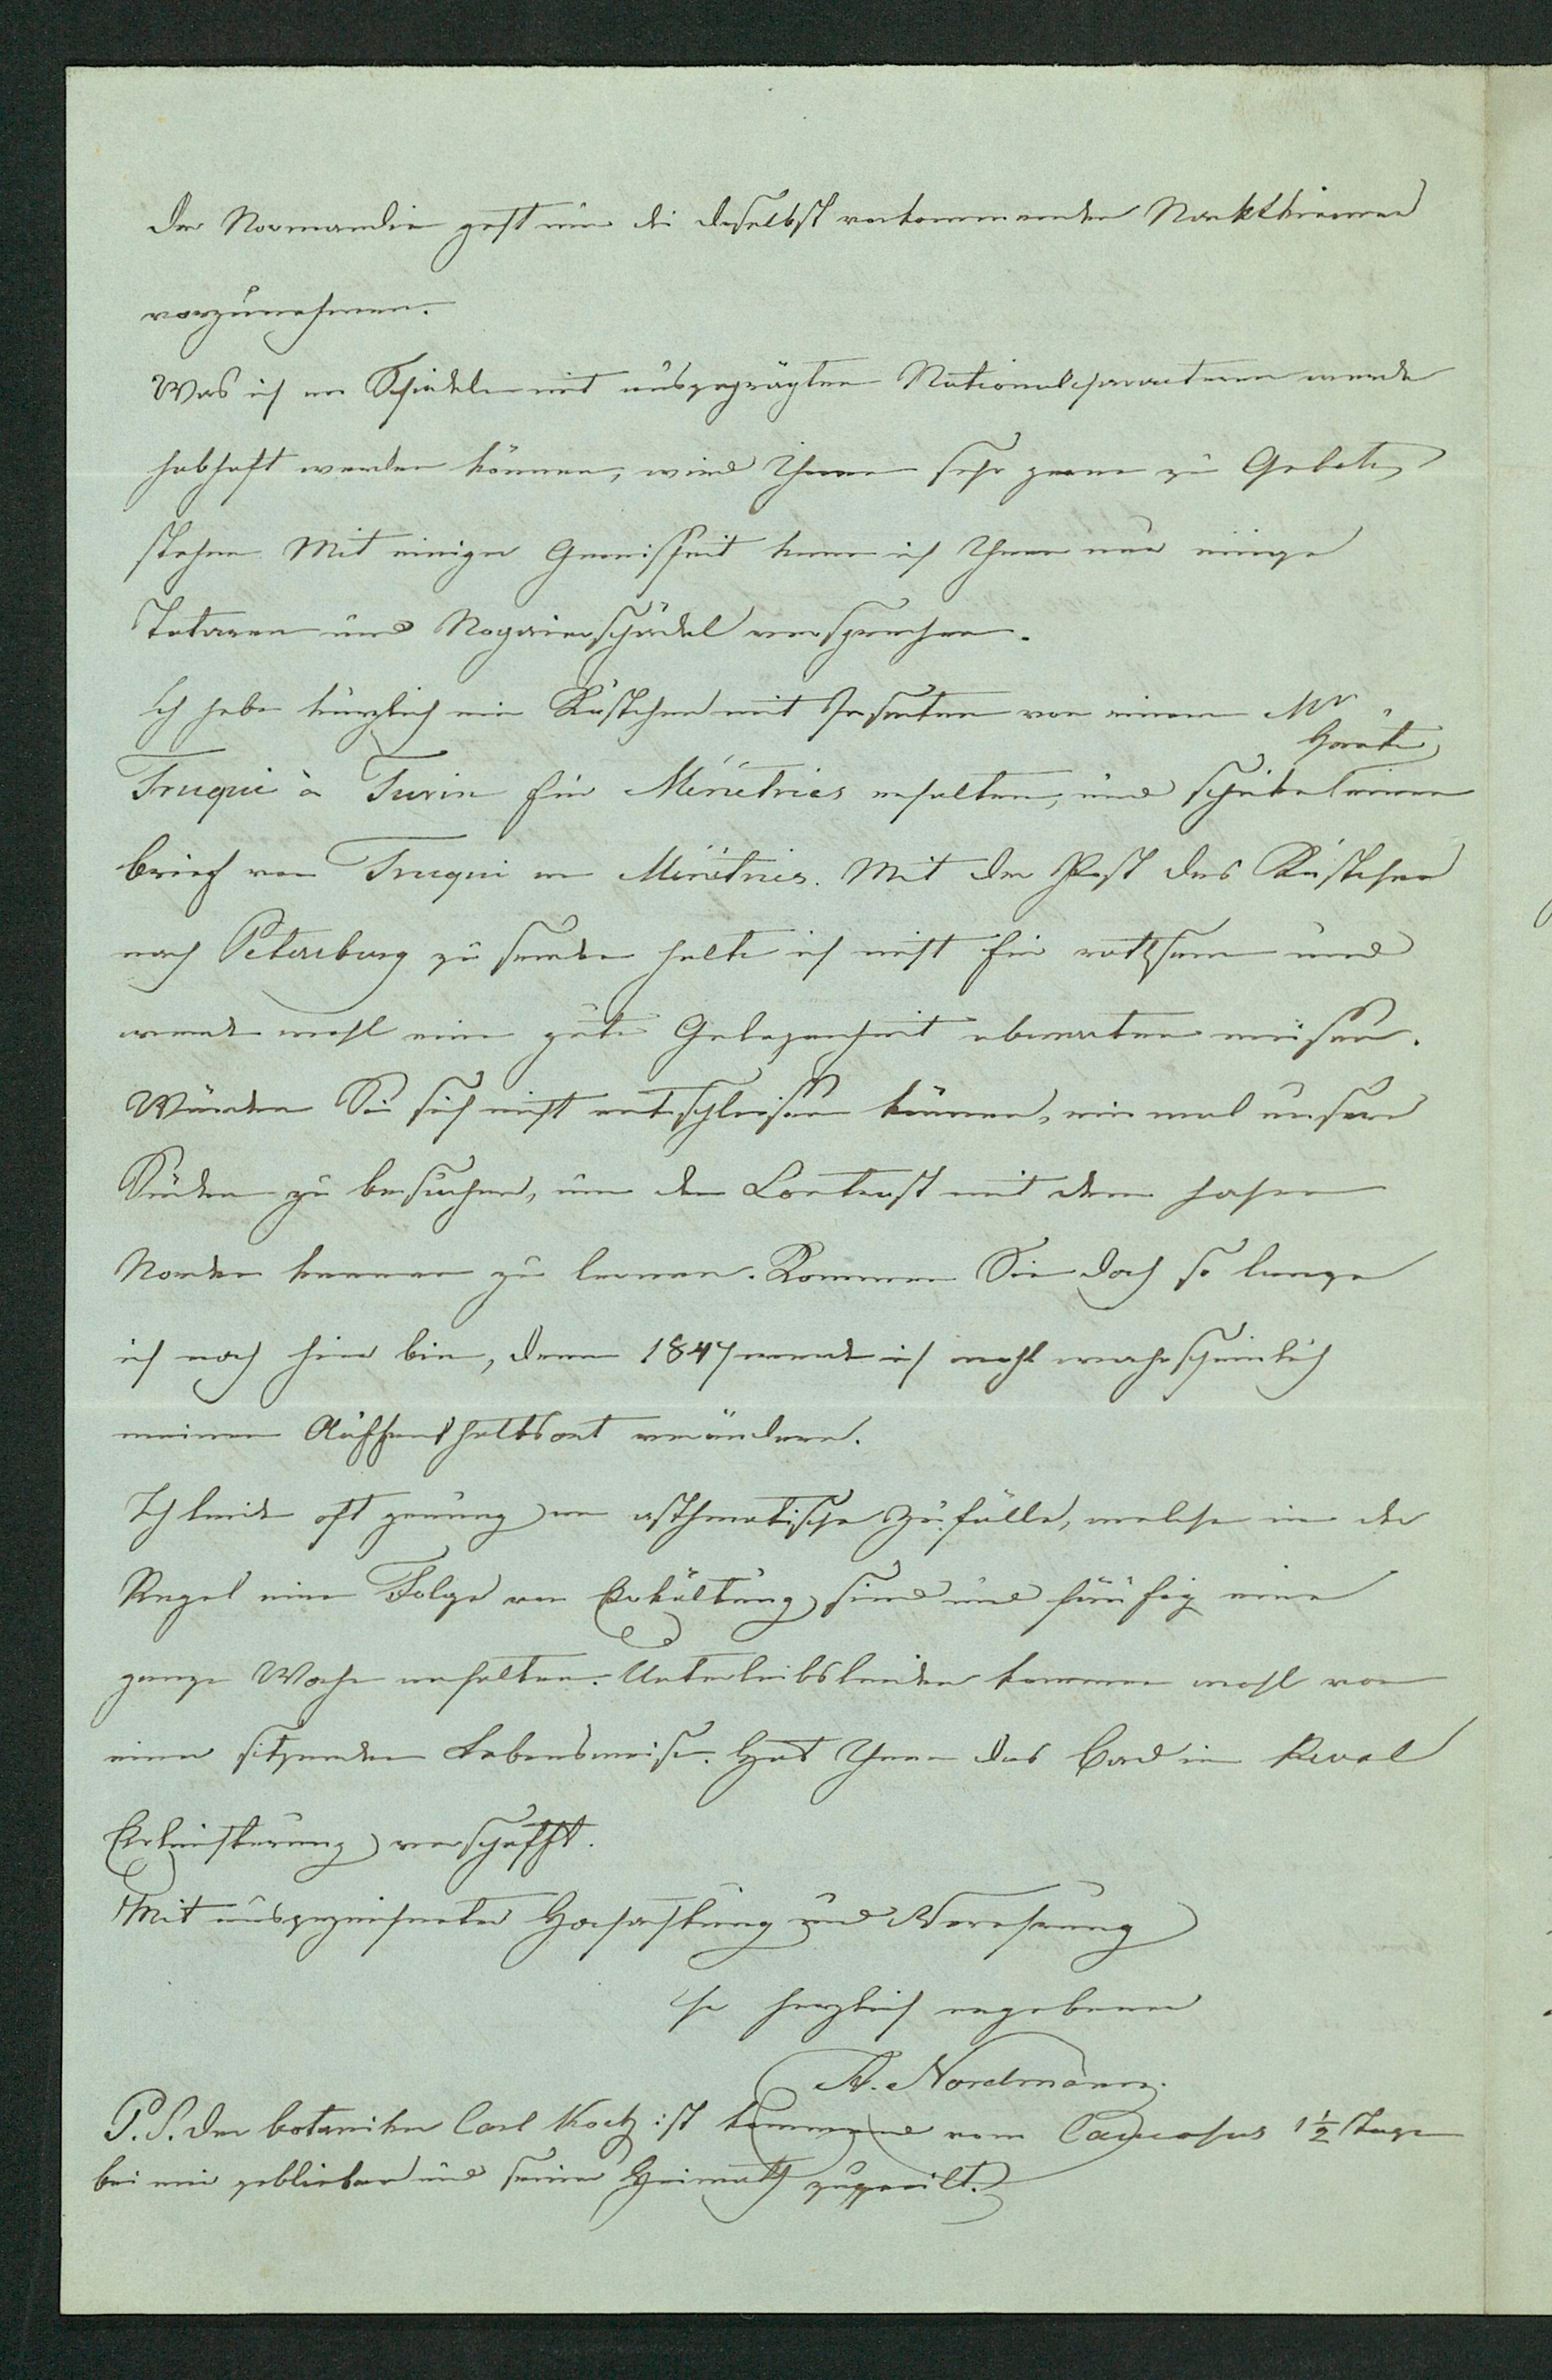 der Normandie geht um die daselbst vorkommenden Nacktkiemer
vorzunehmen.
Was ich an Schädeln mit ausgeprägten Nationalcharacteren werde
habhaft werden können, wird Ihnen sehr gerne zu Gebote
stehen. Mit einiger Gewissheit kann ich Ihnen nur einige
Tataren und Nogaierschädel versprechen.
Ich habe kürzlich ein Kästchen mit Insecten von einem Mr
Truqui à Turin für Ménétriés erhalten, und schicke heute einen
Brief von Truqui an Ménétriés. Mit der Post das Kästchen
nach Petersburg zu senden halte ich nicht für rathsam und
werde wohl eine gute Gelegenheit abwarten müssen.
Würden Sie sich nicht entschliessen können, ein mal unseren
Süden zu besuchen, um den Contrast mit dem hohen
Norden kennen zu lernen. Kommen Sie doch so lange
ich noch hier bin, denn 1847 werde ich wohl wahrscheinlich
meinen Aufenthaltsort verändern.
Ich leide oft genung an asthmatische Zufälle, welche in der
Regel eine Folge von Erkältung sind und häufig eine
ganze Woche anhalten. Unterleibsleiden kommen wohl von
einer sitzenden Lebensweise. Hat Ihnen das Bad in Reval
Erleichterung verschafft.
Mit ausgezeichneter Hochachtung und Verehrung
Ihr herzlich ergebener
A. Nordmann.
P.S. Der Botaniker Carl Koch ist kommend vom Caucasus 1½ Tage
bei mir geblieben und seiner Heimath zugeeilt.